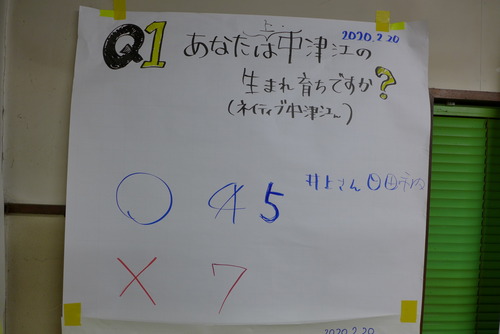 2020.2.20
Q1 あなたは上・中津江の
生まれ育ちですか?
(ネイティブ中津江ん)
○ 4 5
井上さん
× 7
2020.2.20